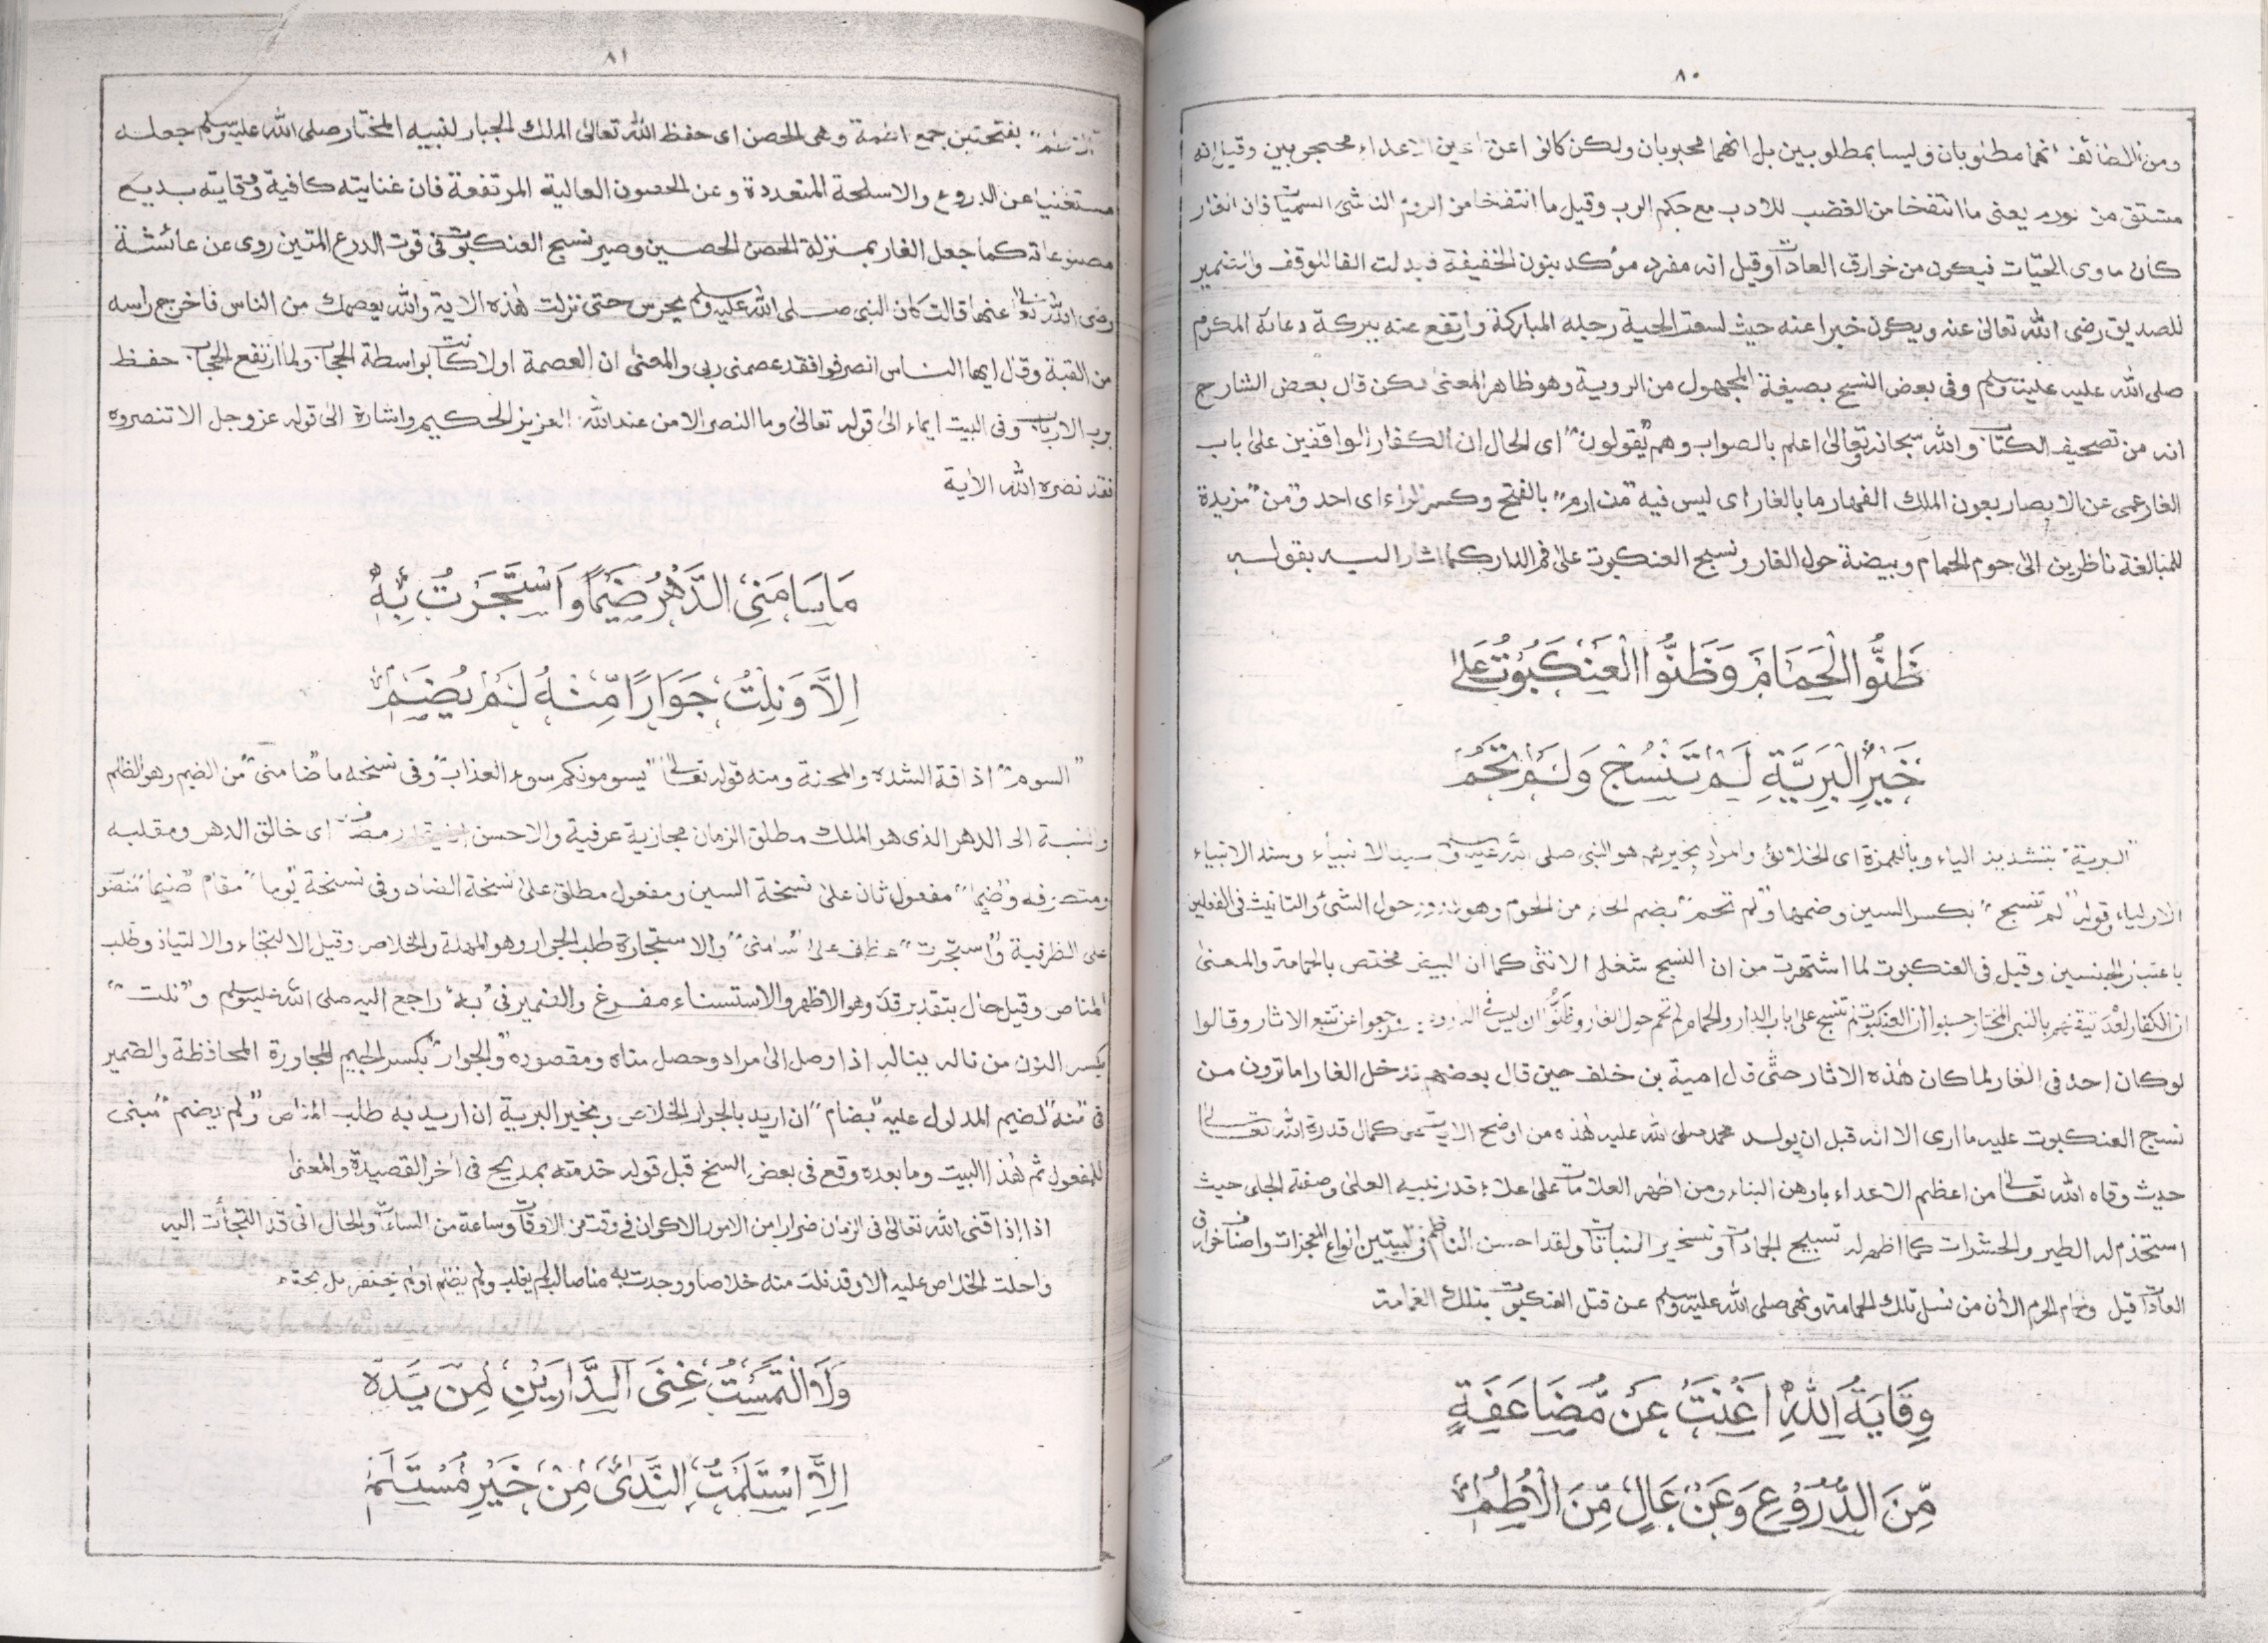 ٨٠
ومن اللطائف انهما مطلوبان وليسا بمطلوبين بل انهما محبوبان ولكن كانوا عن اعين الاعداء محجوبين وقيل انه
مشتق من نورم يعنى ما انتفخا من الغضب للادب مع حكم الرب وقيل ما انتفخا من الورم الناشئ السميات فان الغار
كان ماوى الحيّات فيكون من خوارق العادات وقيل انه مفرد مؤكد بنون الخفيفة فبدلت الفا للوقف والضمير
للصديق رضى الله تعالى عنه ويكون خبرا عنه حيث لسعت الحية رجله المباركة وارتفع عنه ببركة دعائه المكرم
صلى الله عليه وسلم وفى بعض النسخ بصيغة المجهول من الروية وهو ظاهر المعنى لكن قال بعض الشارح
انه من تصحيف الكتاب والله سبحانه وتعالى اعلم بالصواب وهم "يقولون" اى الحال ان الكفار الواقفين على باب
الغار عمى عن الابصار بعون الملك القهار ما بالغار اى ليس فيه "من ارم" بالفتح وكسر الراء اى احد و"من" مزيدة
للمبالغة ناظرين الى حوم الحمام وبيضة حول الغار ونسج العنكبوت على فم الدار كما اشار اليه بقوله
ظَنُّوا الْحَمَامَ وَظَنُّوا الْعَنْكَبُوْتَ عَلٰى
خَيْرِ الْبَرِيَّةِ لَمْ تَنْسُجْ وَلَمْ تَحُمْ
"البرية" بتشديد الياء وبالهمزة اى الخلائق والمراد بخيرهم هو النبى صلى الله عليه وسلم سيد الانبياء وسند الانبياء
الاولياء وقوله "لم تنسج" بكسر السين وضمها و"لم تحم" بضم الحاء من الحوم وهو حول الشئ والتانيث فى الفعلين
باعتبار الجنسين وقيل فى العنكبوت لما اشتهرت من ان النسج شغل الانثى كما ان البيض مختص بالحمامة والمعنى
ان الكفار بالنبى المختار حسبوا ان العنكبوت لم تنسج على باب الدار والحمام لم تحم حول الغار وظنوا ان ليس فى رجعوا عن تتبع الاثار وقالوا
لو كان احد فى الغار لما كان هذه الاثار حتى قال امية بن خلف حين قال بعضهم ندخل الغار اما ترون من
نسج العنكبوت عليه ما ارى الا انه قبل ان يولد محمد صلى الله عليه هذه من اوضح الايات على كمال قدرة الله تعالى
حيث وقاه الله تعالى من اعظم الاعداء باوهن البناء ومن اظهر العلامات على اعلاء قدر نبيه العلى وصفته الجلى حيث
استخدم له الطير والحشرات كما اظهر له تسبيح الجمادات وتسخير النباتات ولقد احسن الناظم فى البيتين انواع المعجزات واصناف خوارق
العادات قيل وحمام الحرم الان من نسل تلك الحمامة ونهى صلى الله عليه وسلم عن قتل العنكبوت بتلك الغمامة
وِقَايَةُ اللّٰهِ اَغْنَتْ عَنْ مُّضَاعَفَةٍ
مِّنَ الدُّرُوْعِ وَعَنْ عَالٍ مِّنَ الْاُطُمِ
٨١
"الاطم" بفتحتين جمع اطمة وهى الحصن اى حفظ الله تعالى الملك الجبار لنبيه المختار صلى الله عليه وسلم جعله
مستغنيا عن الدروع والاسلحة المتعددة وعن الحصون العالية المرتفعة فان عنايته كافية ووقايته بديع
مصنوعاته كما جعل الغار بمنزلة الحصن الحصين وصير نسج العنكبوت فى قوت الدرع المتين روى عن عائشة
رضى الله تعالى عنها قالت كان النبى صلى الله عليه وسلم يحرس حتى نزلت هذه الاية والله يعصمك من الناس فاخرج راسه
من القبة وقال ايها الناس انصرفوا فقد عصمنى ربى والمعنى ان العصمة اولا كانت بواسطة الحجاب ولما ارتفع الحجاب حفظ
برب الارباب وفى البيت ايماء الى قوله تعالى وما النصر الا من عند الله العزيز الحكيم واشارة الى قوله عز وجل الا تنصروه
فقد نصره الله الاية
مَا سَامَنِى الدَّهْرُ ضَيْمًا وَاسْتَجَرْتُ بِهٖ
اِلَّا وَنِلْتُ جَوَارًا مِّنْهُ لَمْ يُضَمِ
"السوم" اذاقة الشدة والمحنة ومنه قوله تعالى "يسومونكم سوء العذاب" وفى نسخة ما "ضامنى" من الضيم وهو الظلم
والنسبة الى الدهر الذى هو الملك مطلق الزمان مجازية عرفية والاحسن اى خالق الدهر ومقلبه
ومتصرفه و"ضيما" مفعول ثان على نسخة السين ومفعول مطلق على نسخة الضاد وفى نسخة "يوما" مقام "ضيما" منصوب
على الظرفية و"استجرت" عطف على "سامنى" والاستجارة طلب الجوار وهو المهلة والخلاص وقيل الالتجاء والالتياذ وطلب
المناص وقيل حال بتقدير قد وهو الاظهر والاستسناء مفرغ والضمير فى "به" راجع اليه صلى الله عليه وسلم و"نلت"
بكسر النون من ناله يناله اذا وصل الى مراد وحصل مناه ومقصوده "والجوار" بكسر الجيم المجاورة المحافظة والضمير
فى "منه" لضيم المدلول عليه "بضام" ان اريد بالجوار الخلاص وبخير البرية ان اريد به طلب المناص "ولم يضم" مبنى
للمفعول ثم هذا البيت وما بعده وقع فى بعض السخ قبل قوله خدمته بمديح فى اخر القصيدة والمعنى
اذا اذاقنى الله تعالى فى الزمان ضرارا من الامور الاكوان فى وقت من الاوقات وساعة من الساعات والحال انى قد التجأت اليه
واحلت الخلاص عليه الا وقد نلت منه خلاصا ووجدت به مناصا لم يغلب ولم يظلم اولم يحتقر بل
وَلَا الْتَمَسْتُ غِنَى الدَّارَيْنِ مِنْ يَّدِهٖ
اِلَّا اسْتَلَمْتُ النَّدٰى مِنْ خَيْرِ مُسْتَلَمٖ